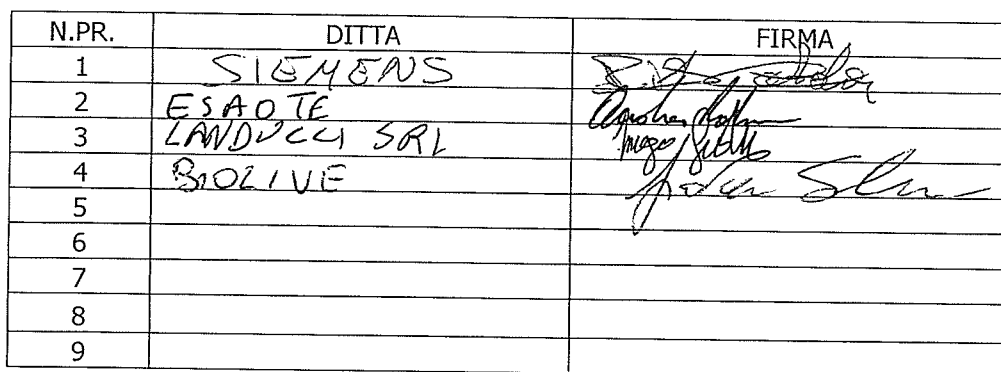 N.PR. DITTA FIRMA
1 SIEMENS
2 ESAOTE
3 LANDUCCI SRL
4 BIOLIVE
5
6
7
8
9